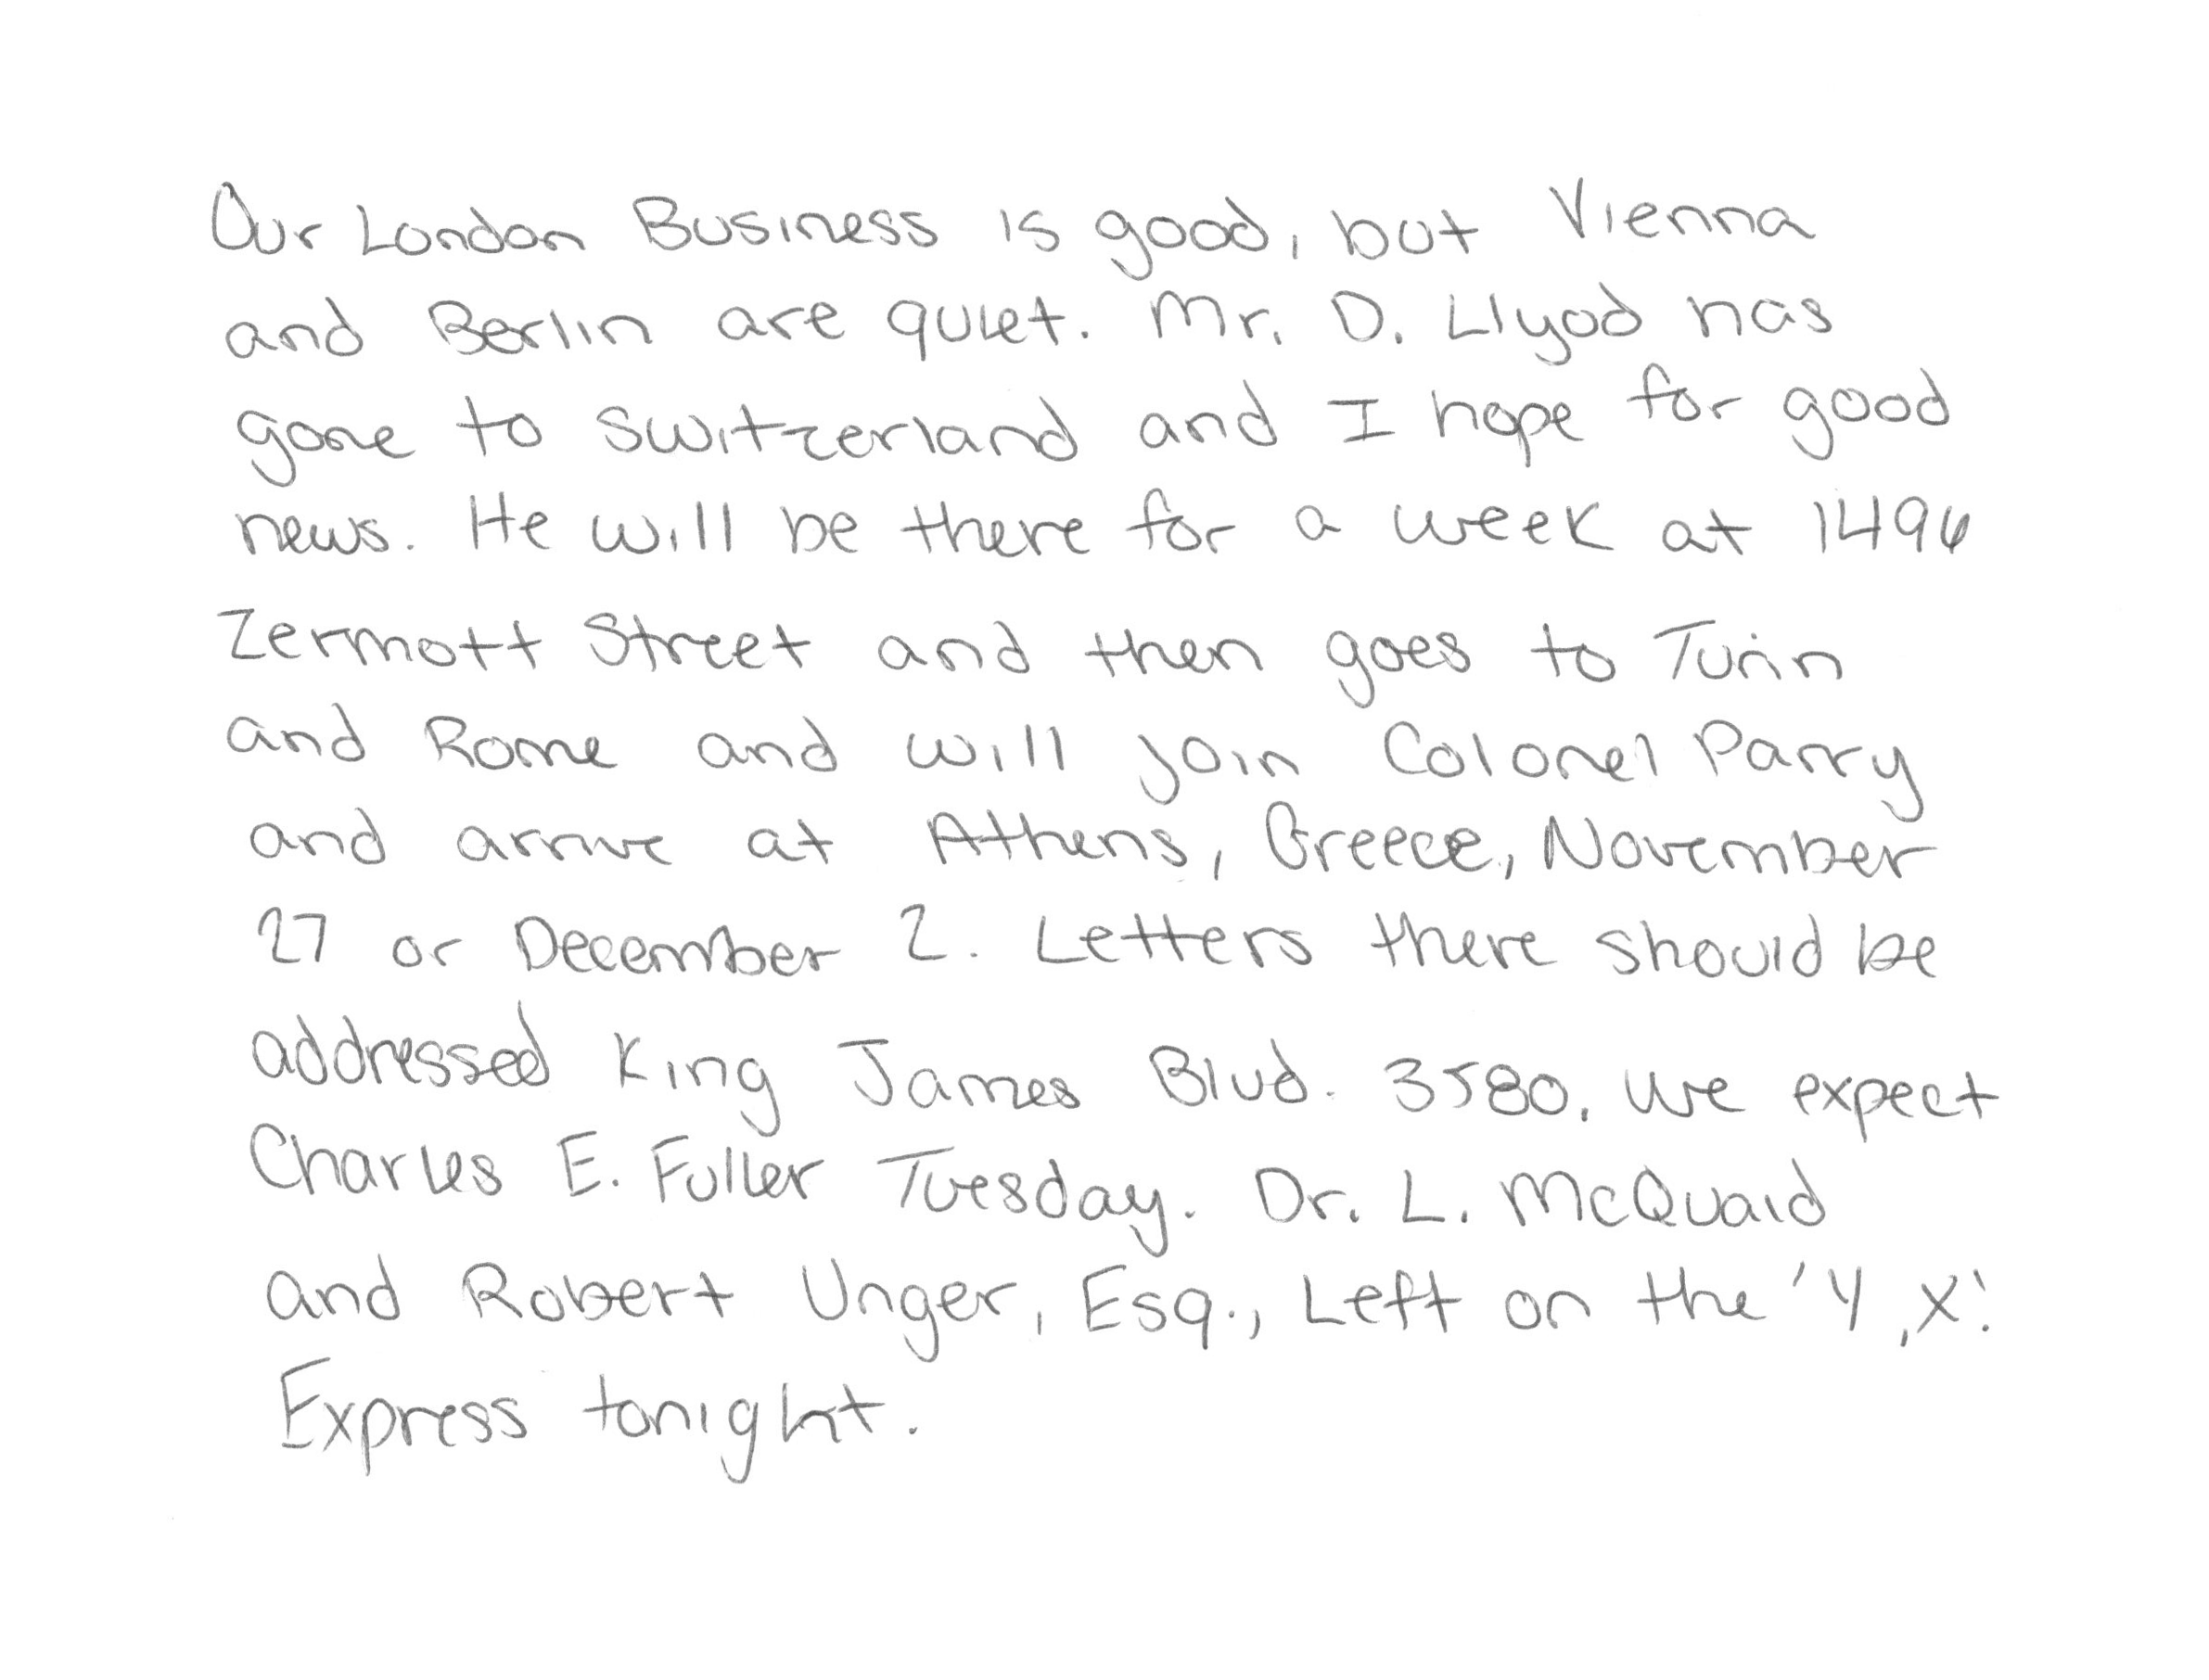 Our London Business is good, but Vienna
and Berlin are quiet. Mr. D. Llyod has
gone to Switzerland and I hope for good
news. He will be there for a week at 1496
Zermott Street and then goes to Turin
and Rome and will join Colonel Parry
and arrive at Athens, Greece, November
27 or December 2. Letters there should be
addressed King James Blvd. 3580. We expect
Charles E. Fuller Tuesday. Dr. L. McQuaid
and Robert Unger, Esq., Left on the 'Y,X.'
Express tonight.